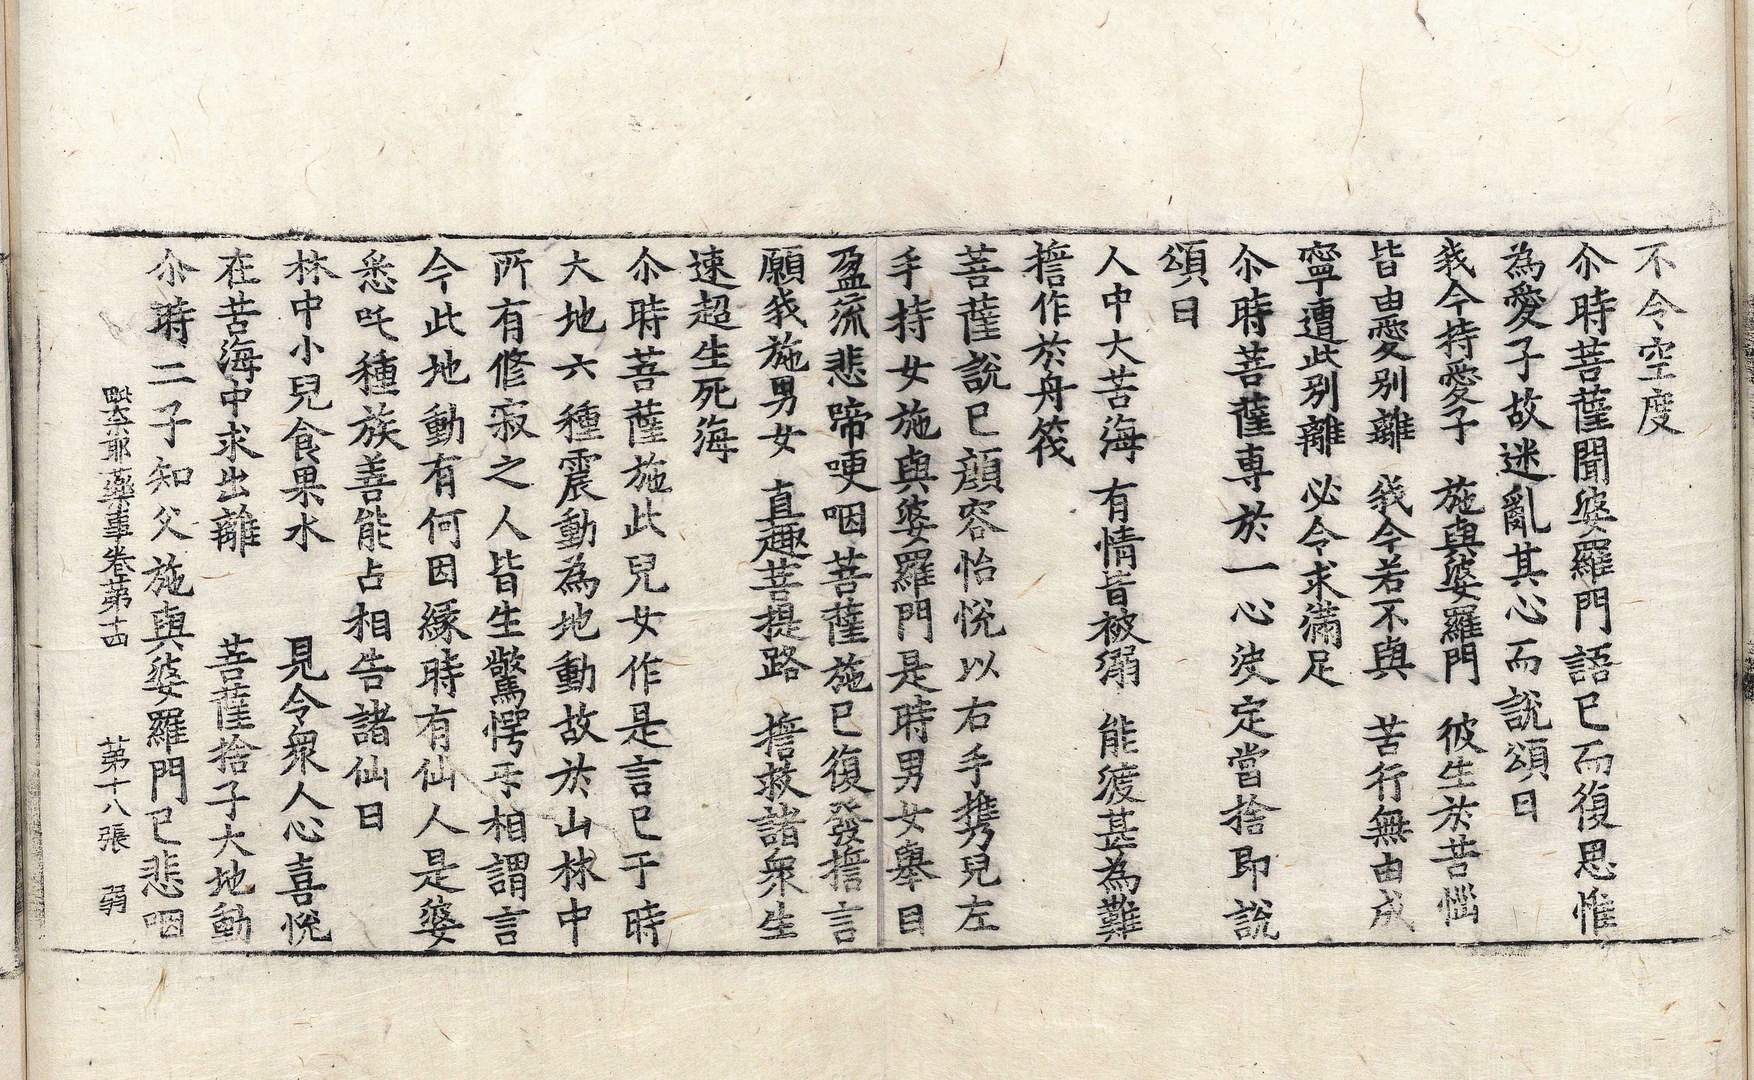 不令空度
尒時菩薩聞婆羅門語已而復思惟
為愛子故迷亂其心而說頌曰
我今持愛子　施與婆羅門　彼生於苦惱
皆由愛別離　我今若不與　苦行無由成
寧遭此別離　必令求滿足
尒時菩薩專於一心決定當捨即說
頌曰
人中大苦海　有情皆被溺　能渡甚為難
擔作於舟筏
菩薩說已顏容怡悅以右手攜兒左
手持女施與婆羅門是時男女舉目
盈流悲啼哽咽菩薩施已復發擔言
願我施男女　直趣菩提路　擔救諸衆生
速超生死海
尒時菩薩施此兒女作是言已于時
大地六種震動為地動故於山林中
所有修寂之人皆生驚愕㸦相謂言
今此地動有何因緣時有仙人是婆
悉吒種族善能占相告諸仙曰
林中小兒食果水　見令衆人心喜悅
在苦海中求出離　菩薩捨子大地動
尒時二子知父施與婆羅門已悲咽
毗奈耶藥事卷第十四　第十八張　弱